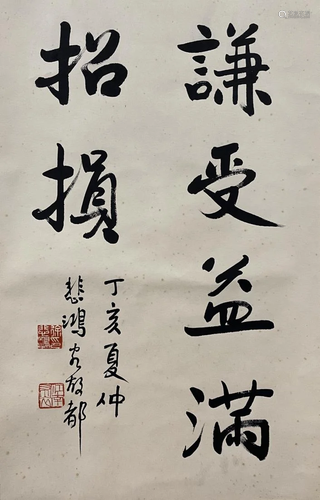 謙受益滿
招損
丁亥夏仲
悲鴻客故都